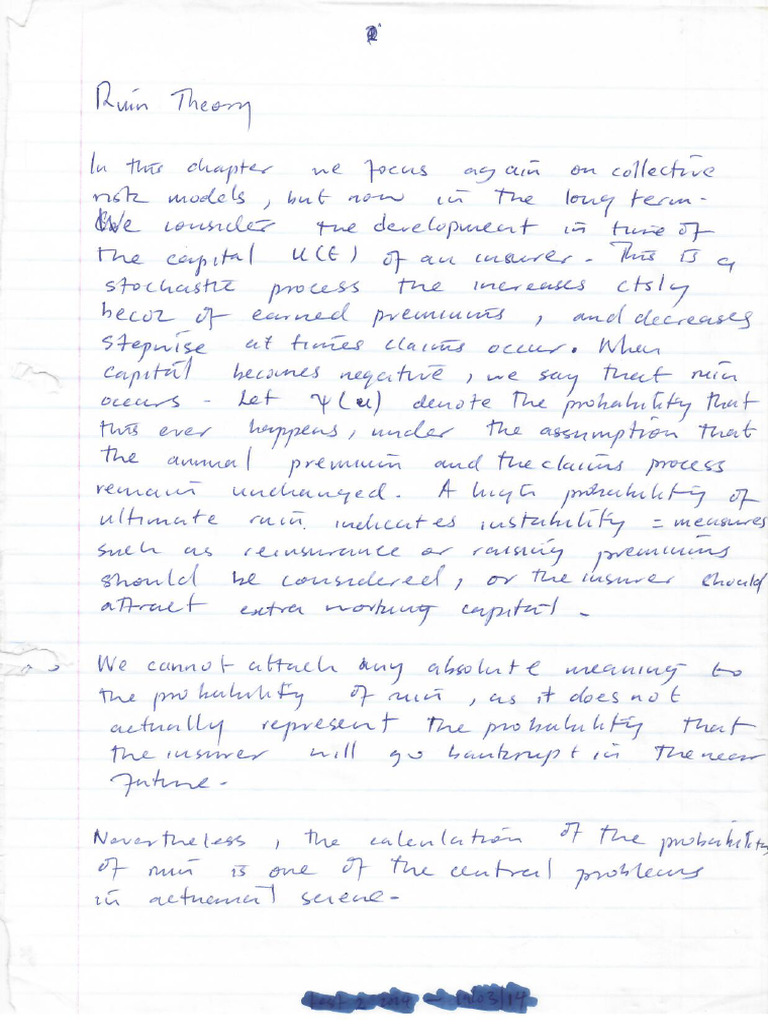 Ruin Theory
In this chapter we focus again on collective
risk models, but now in the long term.
We consider the development in time of
the capital U(t) of an insurer. This is a
stochastic process the increases ctsly
becoz of earned premiums, and decreases
stepwise at times claims occur. When
capital becomes negative, we say that ruin
occurs. Let ψ(u) denote the probability that
this ever happens, under the assumption that
the annual premium and the claims process
remain unchanged. A high probability of
ultimate ruin indicates instability = measures
such as reinsurance or raising premiums
should be considered, or the insurer should
attract extra working capital.
We cannot attach any absolute meaning to
the probability of ruin, as it does not
actually represent the probability that
the insurer will go bankrupt in the near
future.
Nevertheless, the calculation of the probability
of ruin is one of the central problems
in actuarial